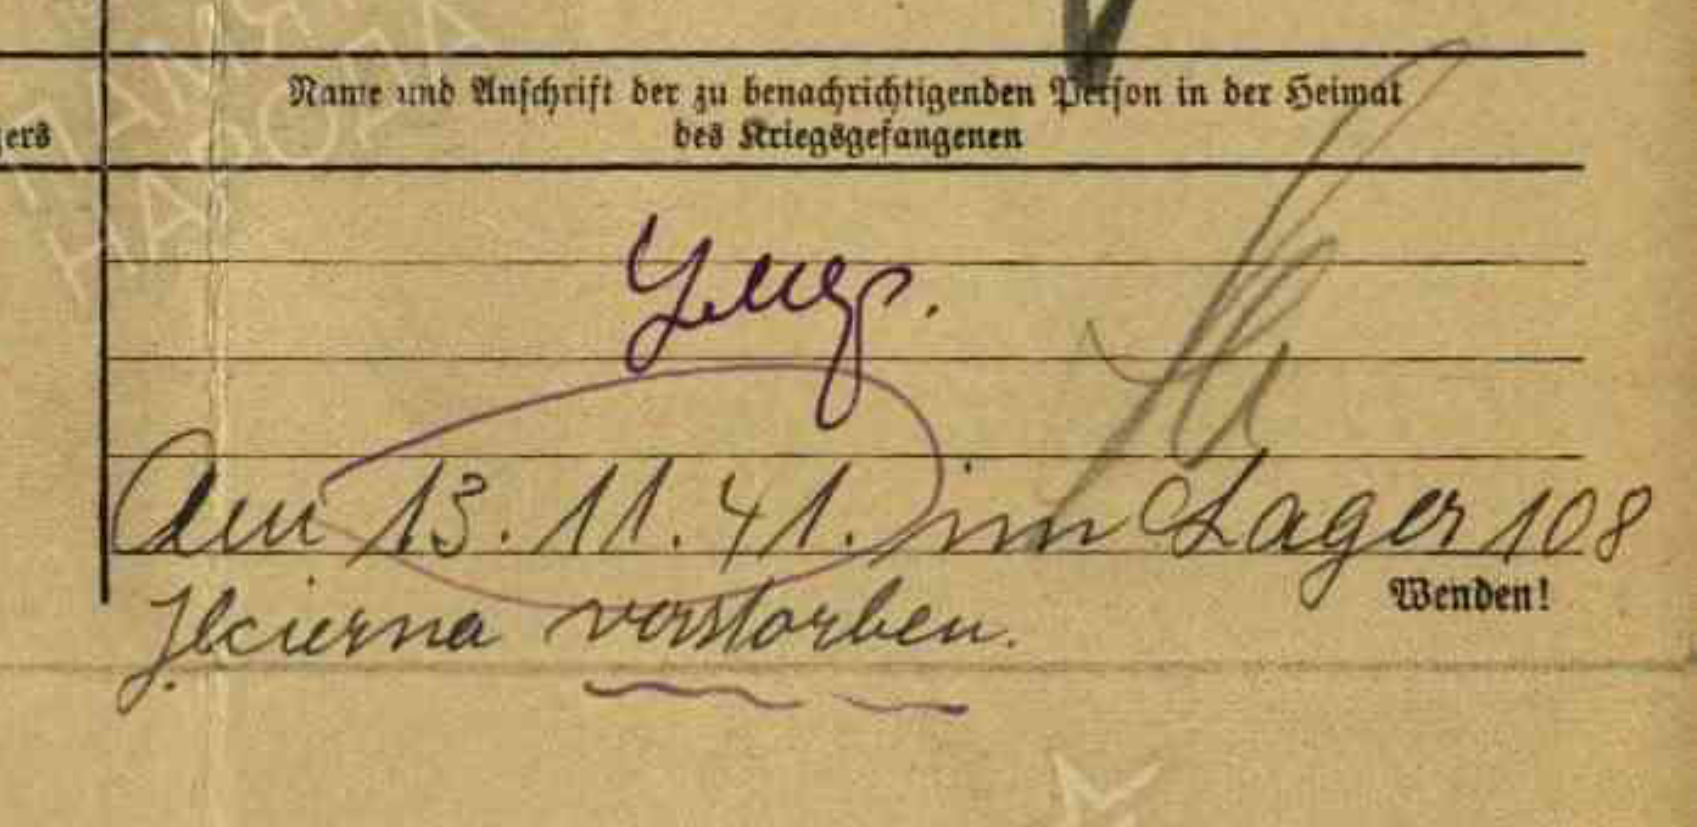 ПАМЯТЬ
НАРОДА
gers
Name und Anschrift der zu benachrichtigenden Person in der Heimat
des Kriegsgefangenen
Умер.
Am 13. 11. 41. im Lager 108
Wenden!
verstorben.